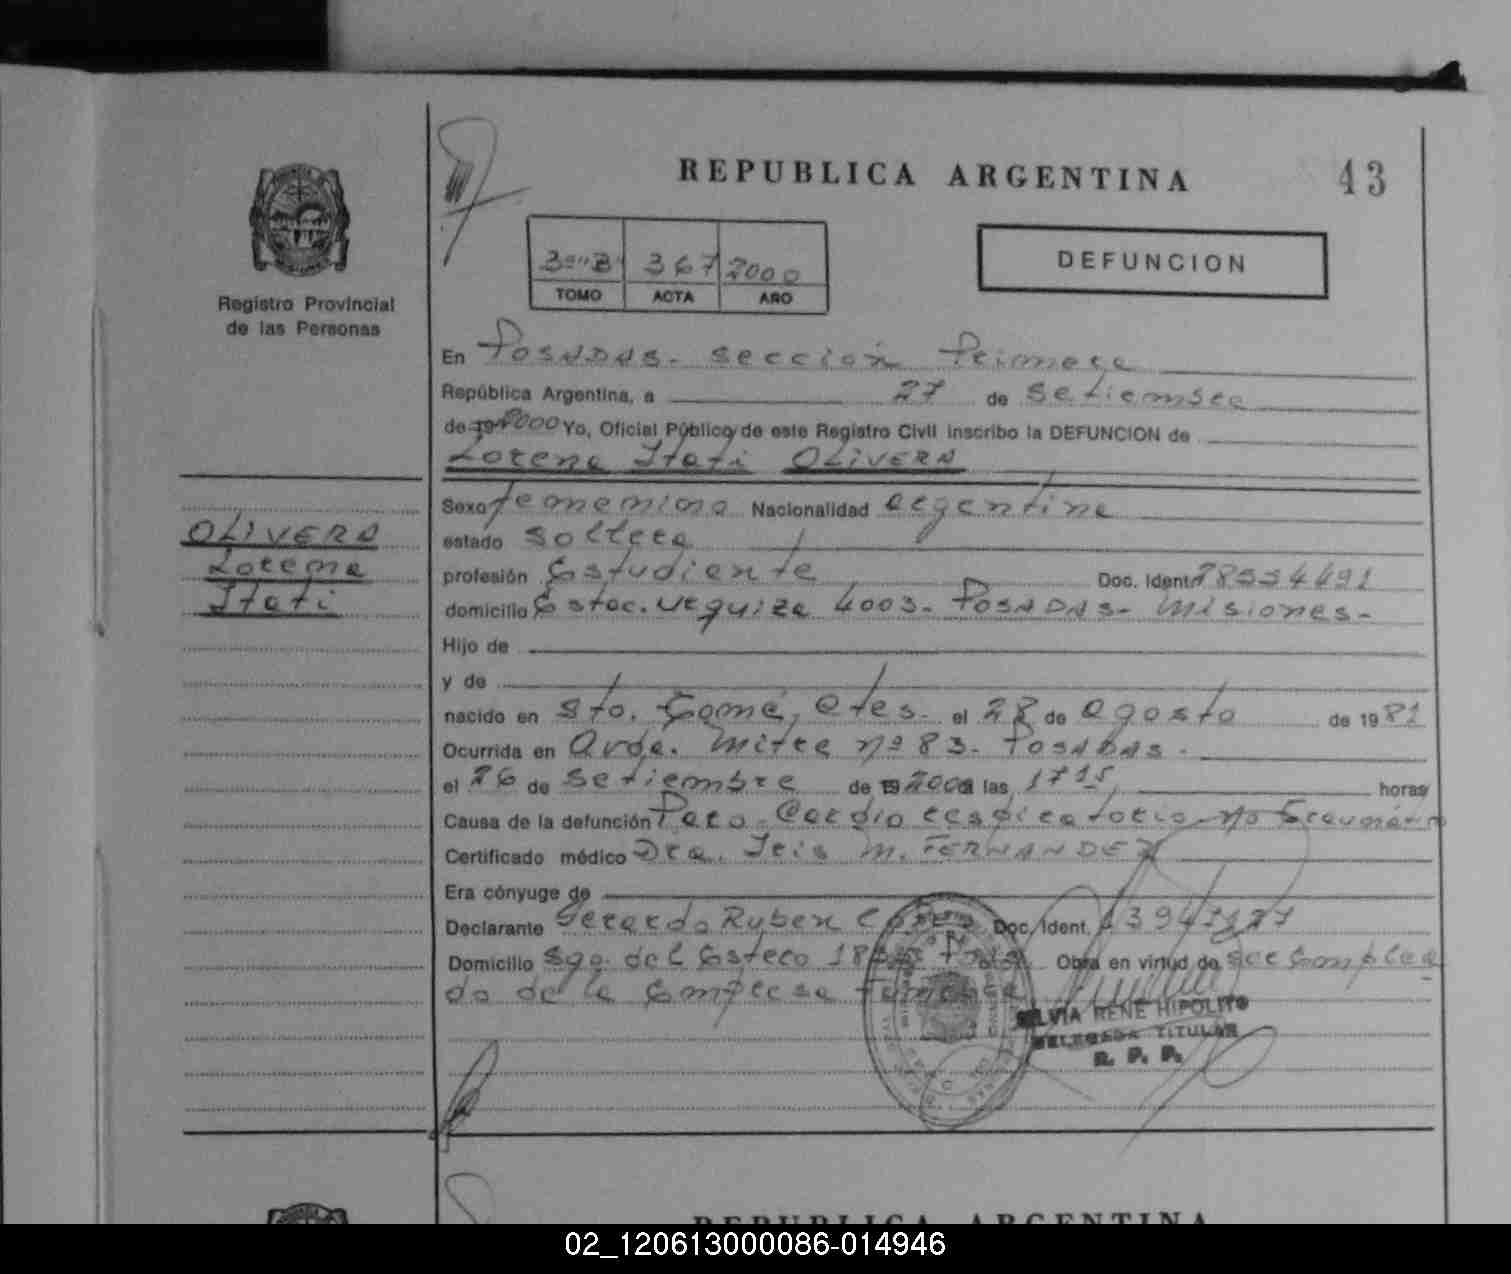 REPUBLICA ARGENTINA 43
Registro Provincial
de las Personas
3º "B" 367 2000
TOMO ACTA AÑO
DEFUNCION
En POSADAS - sección Primera
República Argentina, a 27 de Setiembre
de 19 2000 Yo, Oficial Público de este Registro Civil inscribo la DEFUNCION de
Lorena Itatí OLIVERA
Sexo femenino Nacionalidad argentina
OLIVERA
Lorena
Itatí
estado soltera
profesión Estudiante Doc. Ident. 28554491
domicilio Estac. Uequiza 4003 - POSADAS - Misiones -
Hijo de
y de
nacido en Sto. Tomé, Ctes. el 28 de agosto de 1981
Ocurrida en Avda. Mitre nº 83 - POSADAS -
el 26 de Setiembre de 19 2000 a las 17 15 horas
Causa de la defunción Paro Cardio respiratorio no traumático
Certificado médico Dra. Iris M. FERNANDEZ
Era cónyuge de
Declarante Gerardo Ruben Doc. Ident.
Domicilio Sgo. del Estero Obra en virtud de ser Emplea
do de la Empresa Funebre
SILVIA RENE HIPOLITO
DELEGADA TITULAR
R. P. P.
REPUBLICA ARGENTINA
02_120613000086-014946